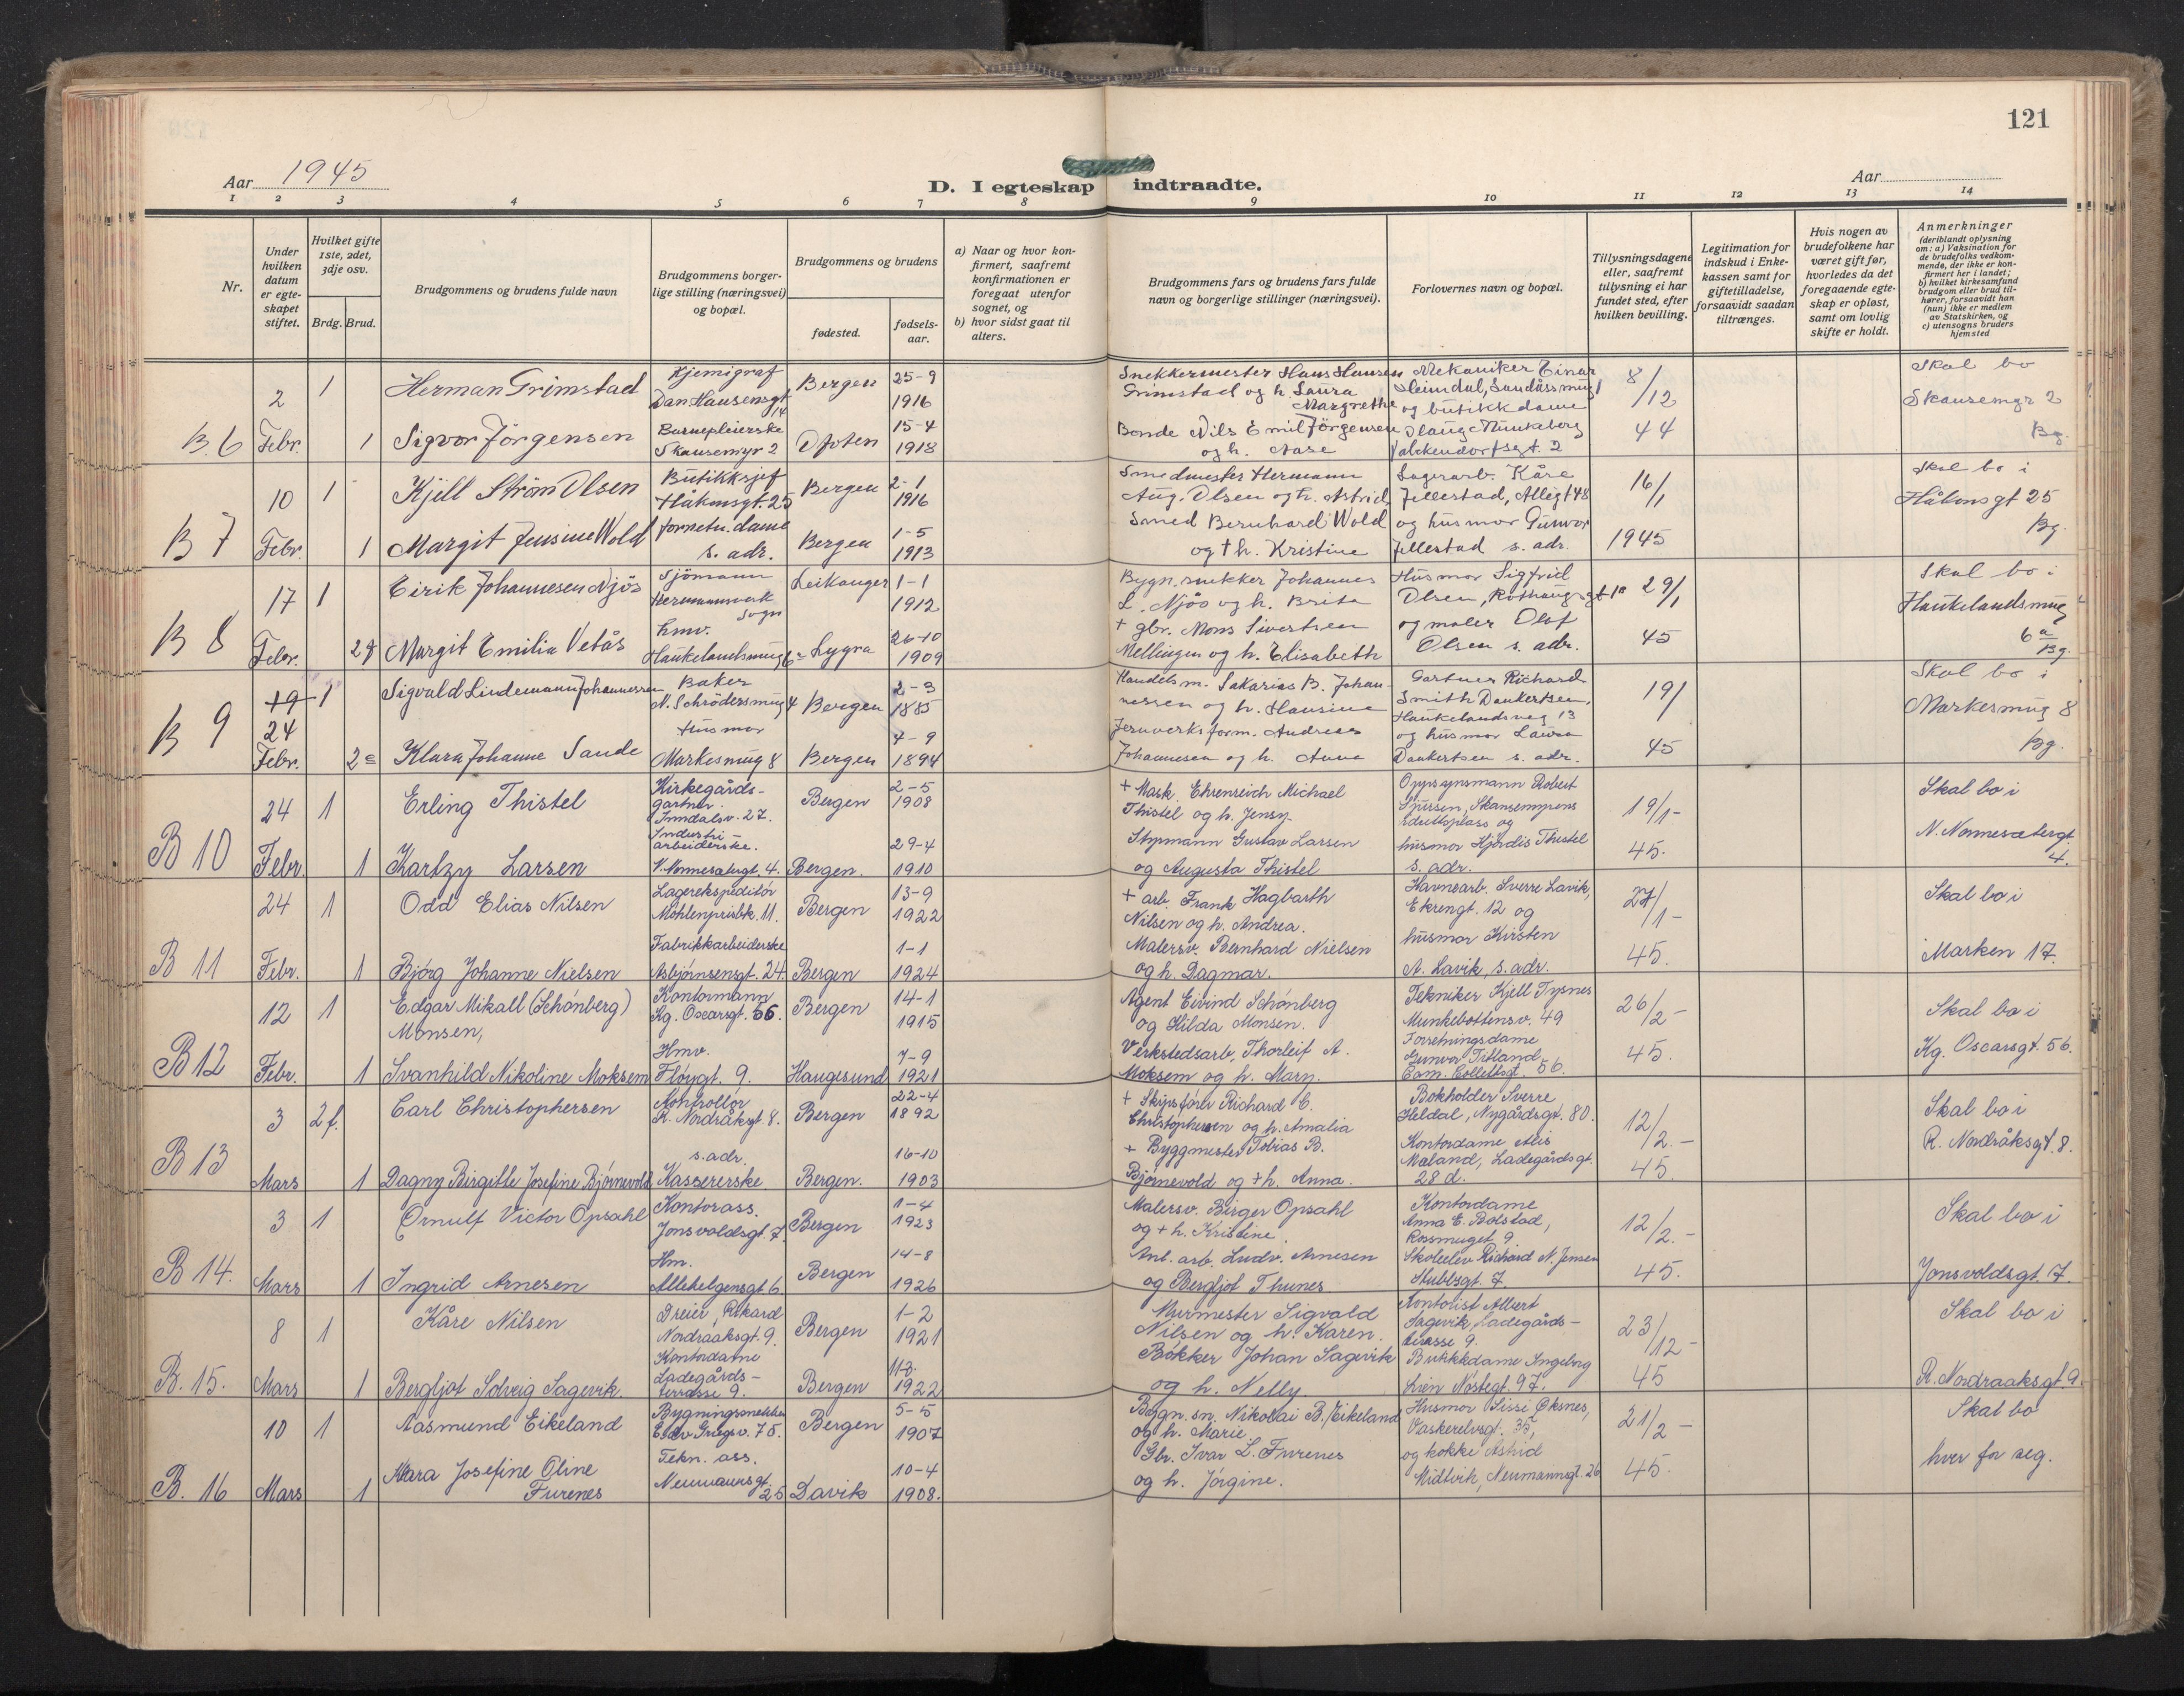 121
Aar 1945
D. I egteskap indtraadte.
Aar
1 2 3 4 5 6 7 8 9 10 11 12 13 14
Nr.
Under hvilken datum er egte-skapet stiftet.
Hvilket gifte 1ste, 2det, 3dje osv.
Brdg. Brud.
Brudgommens og brudens fulde navn
Brudgommens borger-lige stilling (næringsvei) og bopæl.
Brudgommens og brudens
fødested.
fødsels-aar.
a) Naar og hvor kon-firmert, saafremt konfirmationen er foregaat utenfor sognet, og
b) hvor sidst gaat til alters.
Brudgommens fars og brudens fars fulde navn og borgerlige stillinger (næringsvei).
Forlovernes navn og bopæl.
Tillysningsdagene eller, saafremt tillysning ei har fundet sted, efter hvilken bevilling.
Legitimation for indskud i Enke-kassen samt for giftetilladelse, forsaavidt saadan tiltrænges.
Hvis nogen av brudefolkene har været gift før, hvorledes da det foregaaende egte-skap er opløst, samt om lovlig skifte er holdt.
Anmerkninger (deriblandt oplysning om: a) Vaksination for de brudefolks vedkom-mende, der ikke er kon-firmert her i landet; b) hvilket kirkesamfund brudgom eller brud til-hører, forsaavidt han (hun) ikke er medlem av Statskirken, og c) utensogns bruders hjemsted
B. 6
2 Febr.
1
Herman Grimstad
Kjemigraf
Dan Hansensgt. 14
Bergen
25-9 1916
1
Sigvor Jörgensen
Barnepleierske
Skansemyr 2
Ofoten
15-4 1918
Snekkermester Hans Hansen
Grimstad og h. Laura
Margrethe
Bonde Nils Emil Jörgensen
og h. Aase
Mekaniker Einar
Heimdal, Sandåssmug 1
og butikkdame
Olaug Munkeberg
Valckendorfsgt. 2
8/12
44
Skal bo
Skansemyr 2
Bg.
B 7
10 Febr.
1
Kjell Ström Olsen
Butikksjef
Håkonsgt. 25
Bergen
2-1 1916
1
Margit Jensine Wold
forretn. dame
s. adr.
Bergen
1-5 1913
Smedmester Hermann
Aug. Olsen og h. Astrid
Smed Bernhard Wold
og + h. Kristine
Lagerarb. Kåre
Jellestad, Allegt 48
og husmor Gunvor
Jellestad s. adr.
16/1
1945
Skal bo i
Håkonsgt 25
Bg.
B 8
17 Febr.
1
Eirik Johannesen Njös
Sjömann
Hermansverk
Sogn
Leikanger
1-1 1912
2f
Margit Emilia Vetås
hmv.
Haukelandsmug 6a
Lygra
26-10 1909
Bygn. snekker Johannes
L. Njös og h. Brita
+ gbr. Mons Sivertsen
Mellingen og h. Elisabeth
Husmor Sigfrid
Olsen, Rothaugsgt 1a
og maler Olaf
Olsen s. adr.
29/1
45
Skal bo i
Haukelandsmug
6a
Bg.
B 9
19
24 Febr.
1
Sigvald Lindemann Johannessen
Baker
N. Schrödersmug 4
Bergen
2-3 1885
2e
Klara Johanne Sande
Husmor
Markesmug 8
Bergen
4-9 1894
Handelsm. Sakarias B. Johan-
nessen og h. Hansine
Jernverksform. Andreas
Johannesen og h. Anna
Gartner Richard
Smith Dankertsen,
Haukelandsveg 13
og husmor Laura
Dankertsen s. adr.
19/
45
Skal bo i
Markesmug 8
Bg.
B 10
24 Febr.
1
Erling Thistel
Kirkegårds-
gartner.
Inndalsv. 27.
Bergen
2-5 1908
1
Kartzy Larsen
Industri-
arbeiderske.
N. Nonnesætergt. 4.
Bergen.
29-4 1910
+ Mask. Ehrenreich Michael
Thistel og h. Jensy.
Styrmann Gustav Larsen
og Augusta Thistel
Oppsynsmann Robert
Skansemyrens
idrettsplass og
husmor Hjördis Thistel
s. adr.
19/1-
45.
Skal bo i
N. Nonnesætergt.
4.
B 11
24 Febr.
1
Odd Elias Nilsen
Lagerekspeditör
Möhlenprisbk. 11.
Bergen
13-9 1922
1
Bjørg Johanne Nielsen
Fabrikkarbeiderske
Asbjørnsensgt. 24.
Bergen
1-1 1924
+ arb. Frank Hagbarth
Nilsen og h. Andrea.
Malersv. Bernhard Nielsen
og h. Dagmar.
Havnearb. Sverre Lavik,
Ekrengt. 12 og
husmor Kirsten
A. Lavik, s. adr.
27/1-
45.
Skal bo i
Marken 17.
B 12
12 Febr.
1
Edgar Mikall (Schönberg)
Monsen,
Kontormann
Kg. Oscarsgt. 56.
Bergen
14-1 1915
1
Svanhild Nikoline Moksem
Hmv.
Fløygt. 9.
Haugesund
7-9 1921
Agent Eivind Schönberg
og Hilda Monsen.
Verkstedsarb. Thorleif A.
Moksem og h. Mary.
Tekniker Kjell Tysnes
Munkebottensv. 49
Forretningsdame
Gunvor Titland
Cam. Collettsgt. 56.
26/2-
45.
Skal bo i
Kg. Oscarsgt. 56.
B 13
3 Mars
2f.
Carl Christophersen
Kontrollör
R. Nordråksgt. 8.
Bergen
22-4 1892
1
Dagny Birgitte Josefine Bjørnevold
s. adr.
Kassererske
Bergen.
16-10 1903
+ Skipsfører Richard C.
Christophersen og h. Amalia
+ Byggmester Tobias B.
Bjørnevold og + h. Anna.
Bokholder Sverre
Heldal, Nygårdsgt. 80.
Kontordame
Mæland, Ladegårdsgt.
28 d.
12/2.-
45.
Skal bo i
R. Nordråksgt. 8.
B 14.
3 Mars
1
Ørnulf Victor Opsahl
Kontorass.
Jonsvoldsgt. 7.
Bergen
1-4 1923
1
Ingrid Arnesen
Hm.
Allehelgensgt 6.
Bergen
14-8 1926
Malersv. Birger Opsahl
og + h. Kristine.
Anl. arb. Ludv. Arnesen
og Bergljot Thunes.
Kontordame
Anna E. Bolstad,
Rosesmuget 9.
Skoleelev Richard N. Jensen
Stubbsgt. 7.
12/2.-
45.
Skal bo i
Jonsvoldsgt. 7.
B. 15.
8 Mars
1
Kåre Nilsen
Dreier, Rikard
Nordraaksgt. 9.
Bergen
1-2 1921
1
Bergljot Solveig Sagevik.
Kontordame
Ladegårds-
terrasse 9.
Bergen
11-2. 1922
Murmester Sigvald
Nilsen og h. Karen.
Bökker Johan Sagevik
og h. Nelly.
Kontorist Albert
Sagevik, Ladegårds-
terasse 9.
Butikkdame Ingeborg
Lien Nöstegt. 97.
23/12-
45
Skal bo i
R. Nordraaksgt. 9.
B. 16
10 Mars
1
Aasmund Eikeland
Bygningssnekker
Edv Griegsv. 75.
Bergen
5-5 1907
1
Mara Josefine Oline
Furenes
Tekn. ass.
Neumannsgt.
25
Davik
10-4 1908.
Bygn. sn. Nikolai B. Eikeland
og h. Marie.
Gbr. Ivar L. Furenes
og h. Jörgine.
Husmor Lissi Øksnes,
Vaskerelvsgt. 35,
og kokke Astrid
Midtvik, Neumannsgt. 26
21/2-
45.
Skal bo
hver for seg.